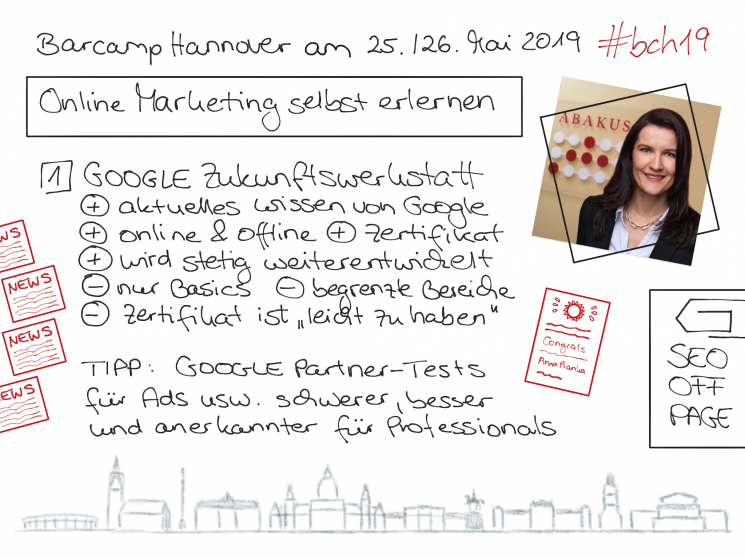 Barcamp Hannover am 25./26. Mai 2019 #bch19
Online Marketing selbst erlernen
ABAKUS
1 GOOGLE Zukunftswerkstatt
+ aktuelles Wissen von Google
+ online & offline + Zertifikat
+ wird stetig weiterentwickelt
- nur Basics - begrenzte Bereiche
- Zertifikat ist „leicht zu haben“
TIPP: GOOGLE Partner-Tests
für Ads usw. schwerer, besser
und anerkannter für Professionals
NEWS
NEWS
NEWS
NEWS
Congrats
Anna Pianka
SEO
OFF
PAGE